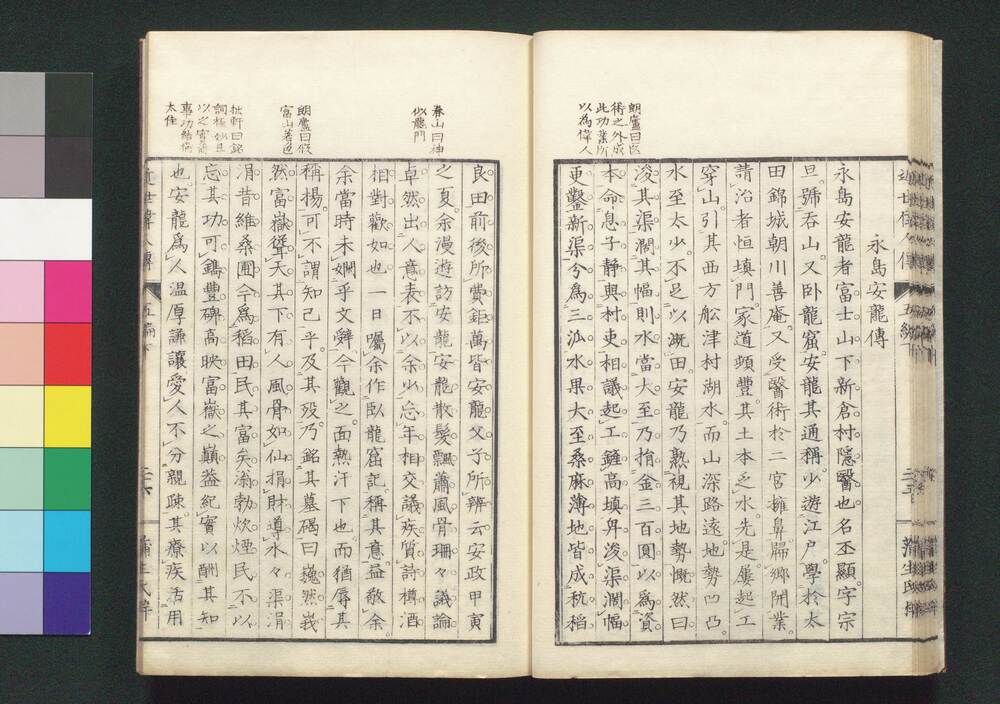 永島安龍傳
永島安龍者富士山下新倉村隱醫也名丕顯字宗
旦號吞山又卧龍窟安龍其通稱少遊江户學於太
田錦城朝川善庵又受醫術於二宮擁鼻歸鄉開業
請治者恒填門家道頗豐其土本乏水先是屢起工
穿山引其西方舩津村湖水而山深路遠地勢凹凸
水至太少不足以溉田安龍乃熟視其地勢慨然曰
浚其渠濶其幅則水當大至乃捐金三百圓以為資
本命息子靜與村吏相議起工鏟高填卑浚渠濶幅
更鑿新渠兮為三派水果大至桑麻薄地皆成秔稻
朗廬曰医
術之外成
此功業所
以為偉人
良田前後所費鉅萬皆安龍父子所辨云安政甲寅
之夏余漫遊訪安龍安龍散髮飄蕭風骨珊々議論
卓然出人意表不以余少忘年相交議疾質詩樽酒
相對歡如也一日囑余作臥龍窟記稱其意益敬余
余當時未嫻乎文辭今觀之面熱汗下也而猶辱其
稱揚可不謂知己乎及其歿乃銘其墓碣曰巍然我
然富嶽聳天其下有人風骨如仙捐財導水々渠涓
涓昔維桑圃今為稻田民其富矣滃勃炊煙民不以
忘其功可鐫豐碑高映富嶽之巔蓋紀實以酬其知
也安龍為人温厚謙讓愛人不分親疎其療疾活用
春山曰神
似龍門
朗廬曰假
富山著色
枇軒曰銘
以之實
事功結
太佳
近世偉人傳
五編下
蒲生氏梓